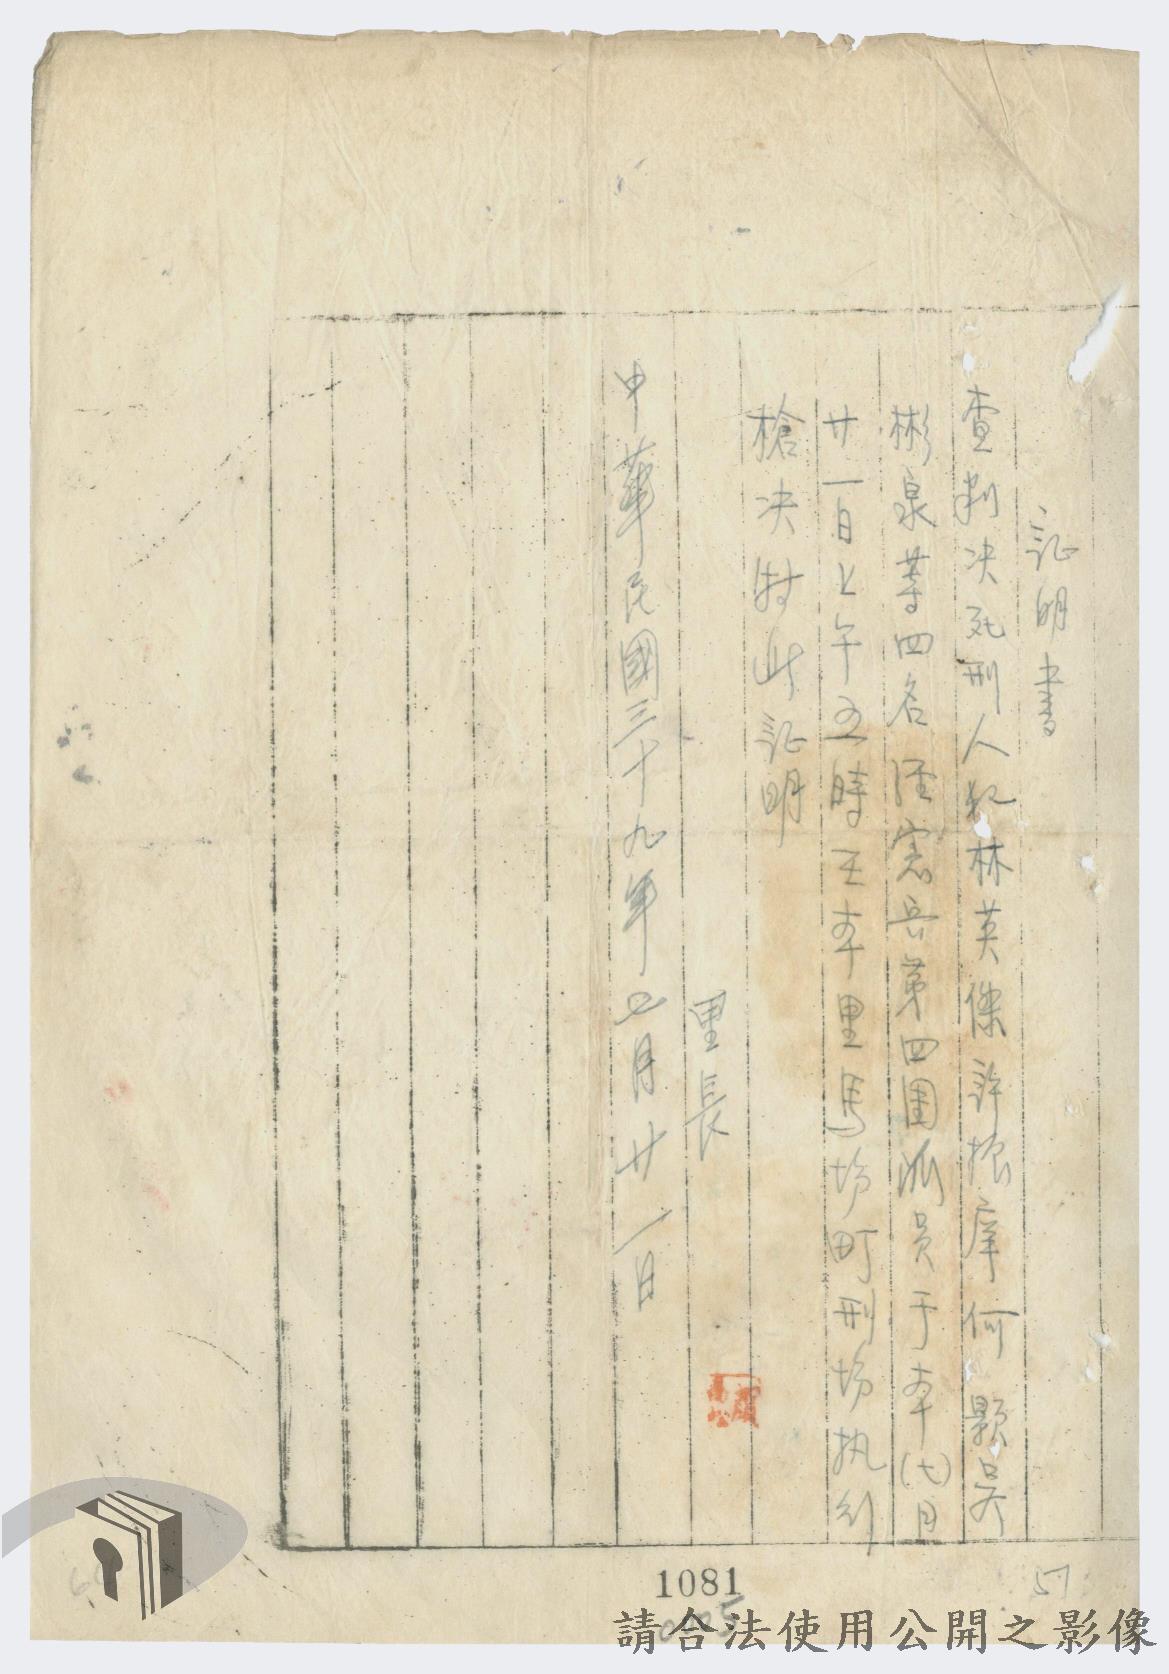 証明書
查判决死刑人犯林英傑許振庠何顯吳
彬泉等四名經憲兵第四團派員于本(七)月
廿一日上午五時正本里馬場町刑場执行
槍决特此証明
里長
中華民國三十九年七月廿一日
1081
57
請合法使用公開之影像